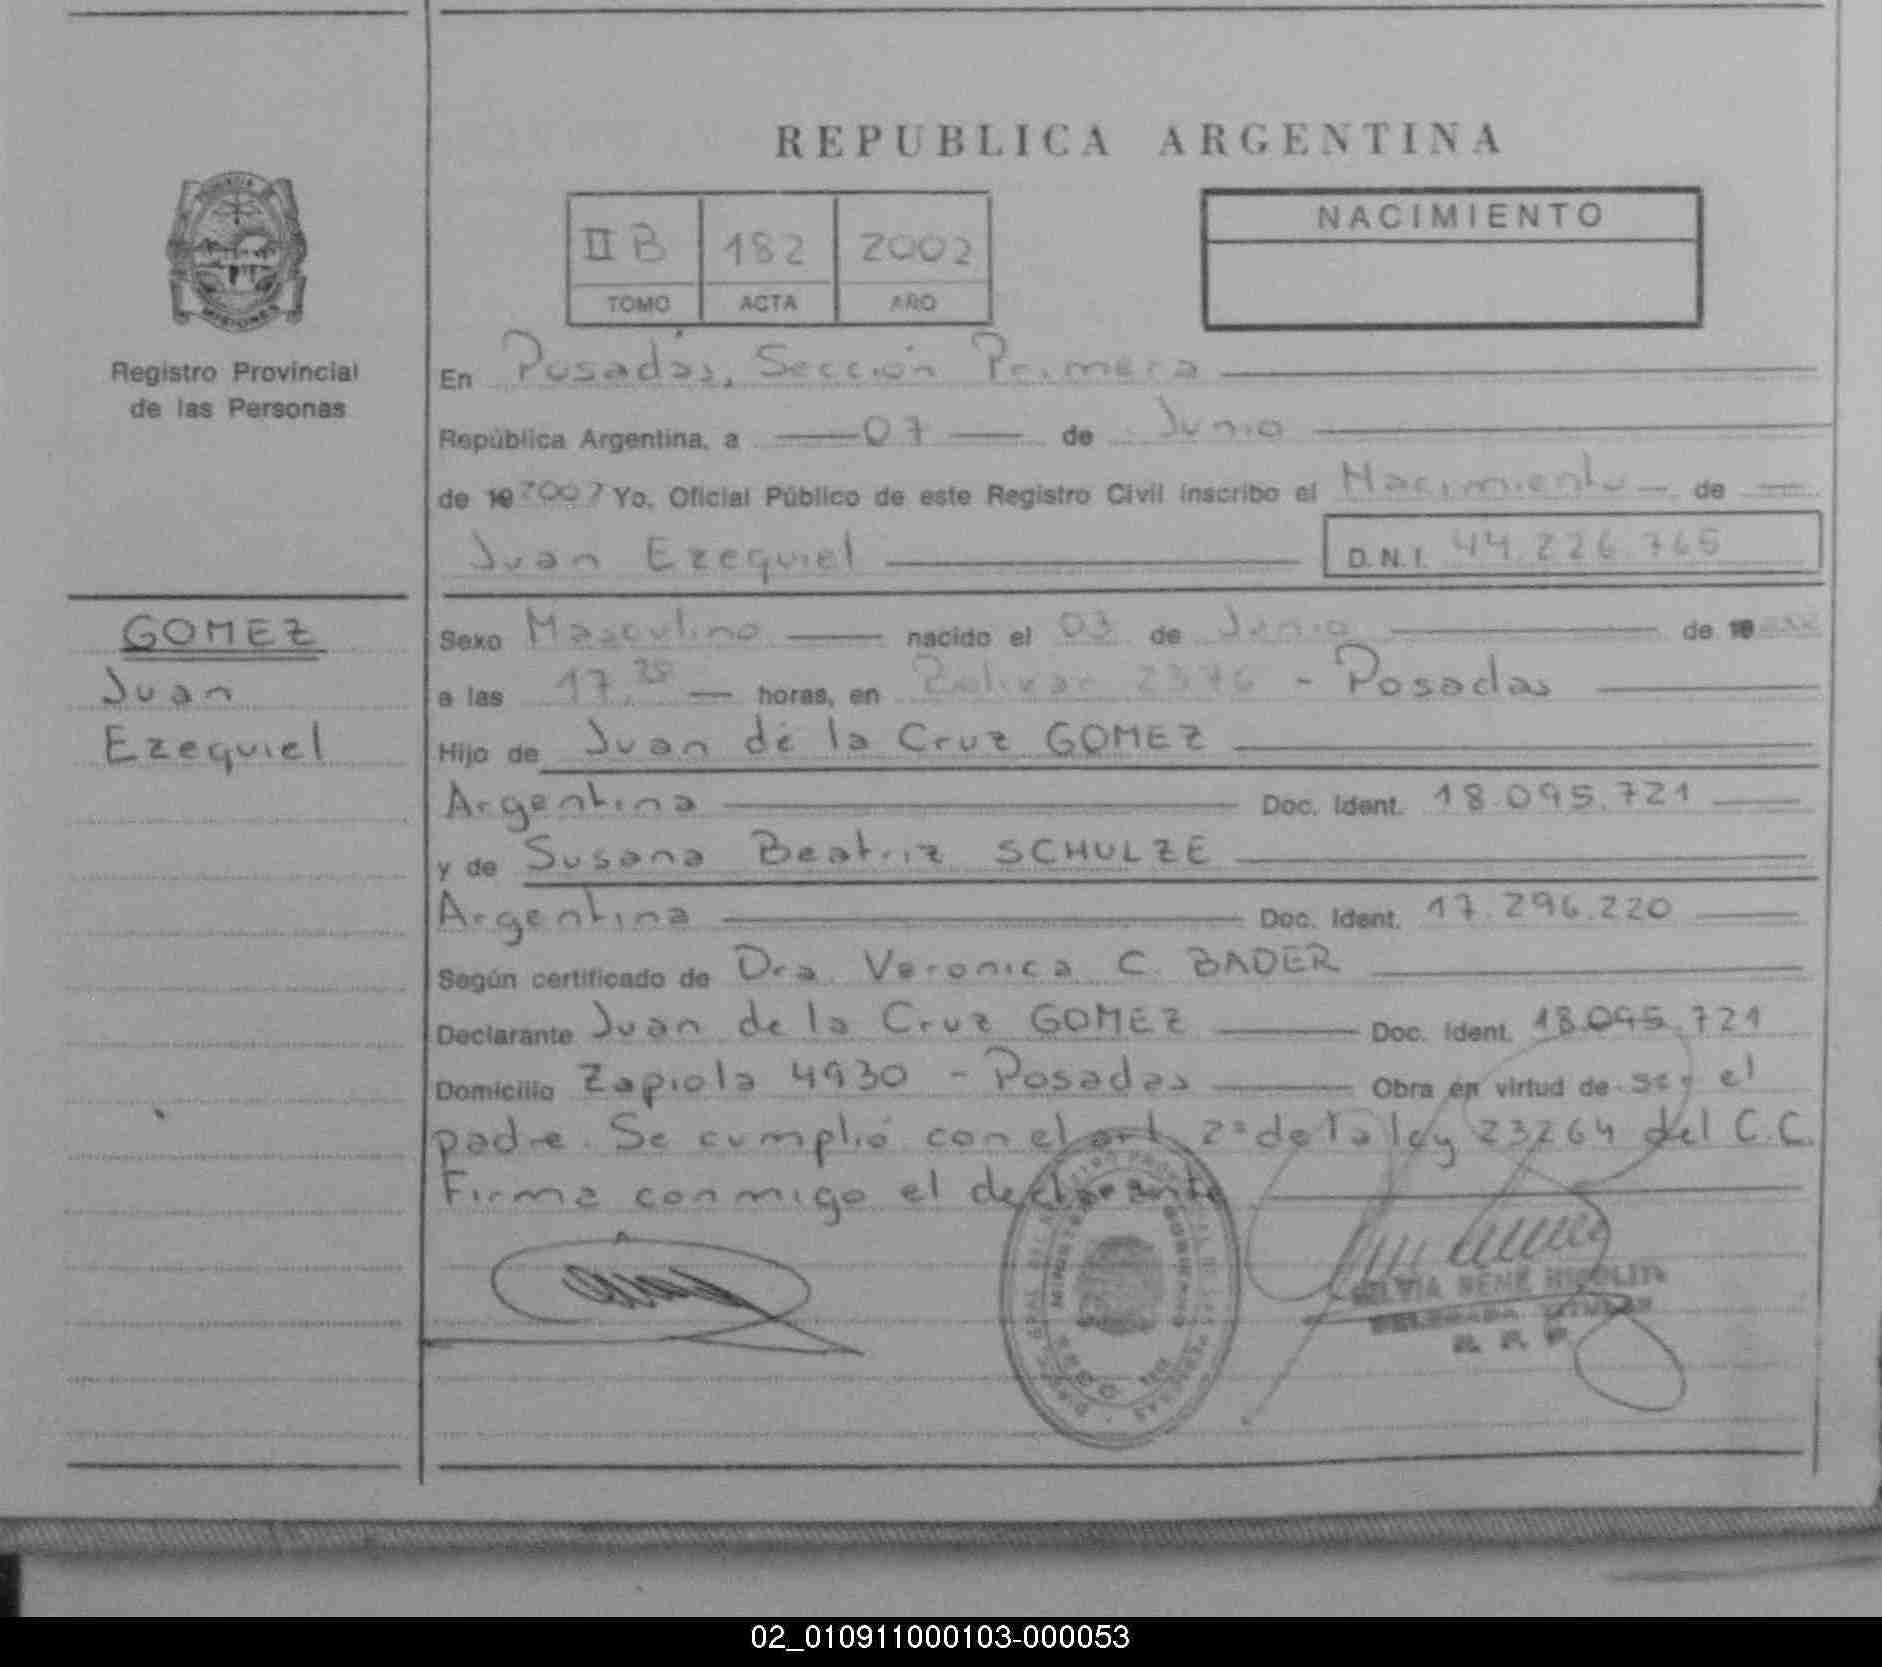 REPUBLICA ARGENTINA
II B 182 2002
TOMO ACTA AÑO
NACIMIENTO
MISIONES
Registro Provincial
de las Personas
En Posadas, Sección Primera
República Argentina, a 07 de Junio
de 19 2002 Yo, Oficial Público de este Registro Civil inscribo el Nacimiento de
Juan Ezequiel
D.N.I. 44.226.765
GOMEZ
Juan
Ezequiel
Sexo Masculino nacido el 03 de Junio de 19
a las 17,38 horas, en Bolivar 2376 - Posadas
Hijo de Juan de la Cruz GOMEZ
Argentina Doc. Ident. 18.095.721
y de Susana Beatriz SCHULZE
Argentina Doc. Ident. 17.296.220
Según certificado de Dra. Veronica C. BADER
Declarante Juan de la Cruz GOMEZ Doc. Ident. 18.095.721
Domicilio Zapiola 4930 - Posadas Obra en virtud de ser el
padre. Se cumplió con el art. 2º de la ley 23264 del C.C.
Firma conmigo el declarante
SILVIA RENE
R. P. P.
02_010911000103-000053